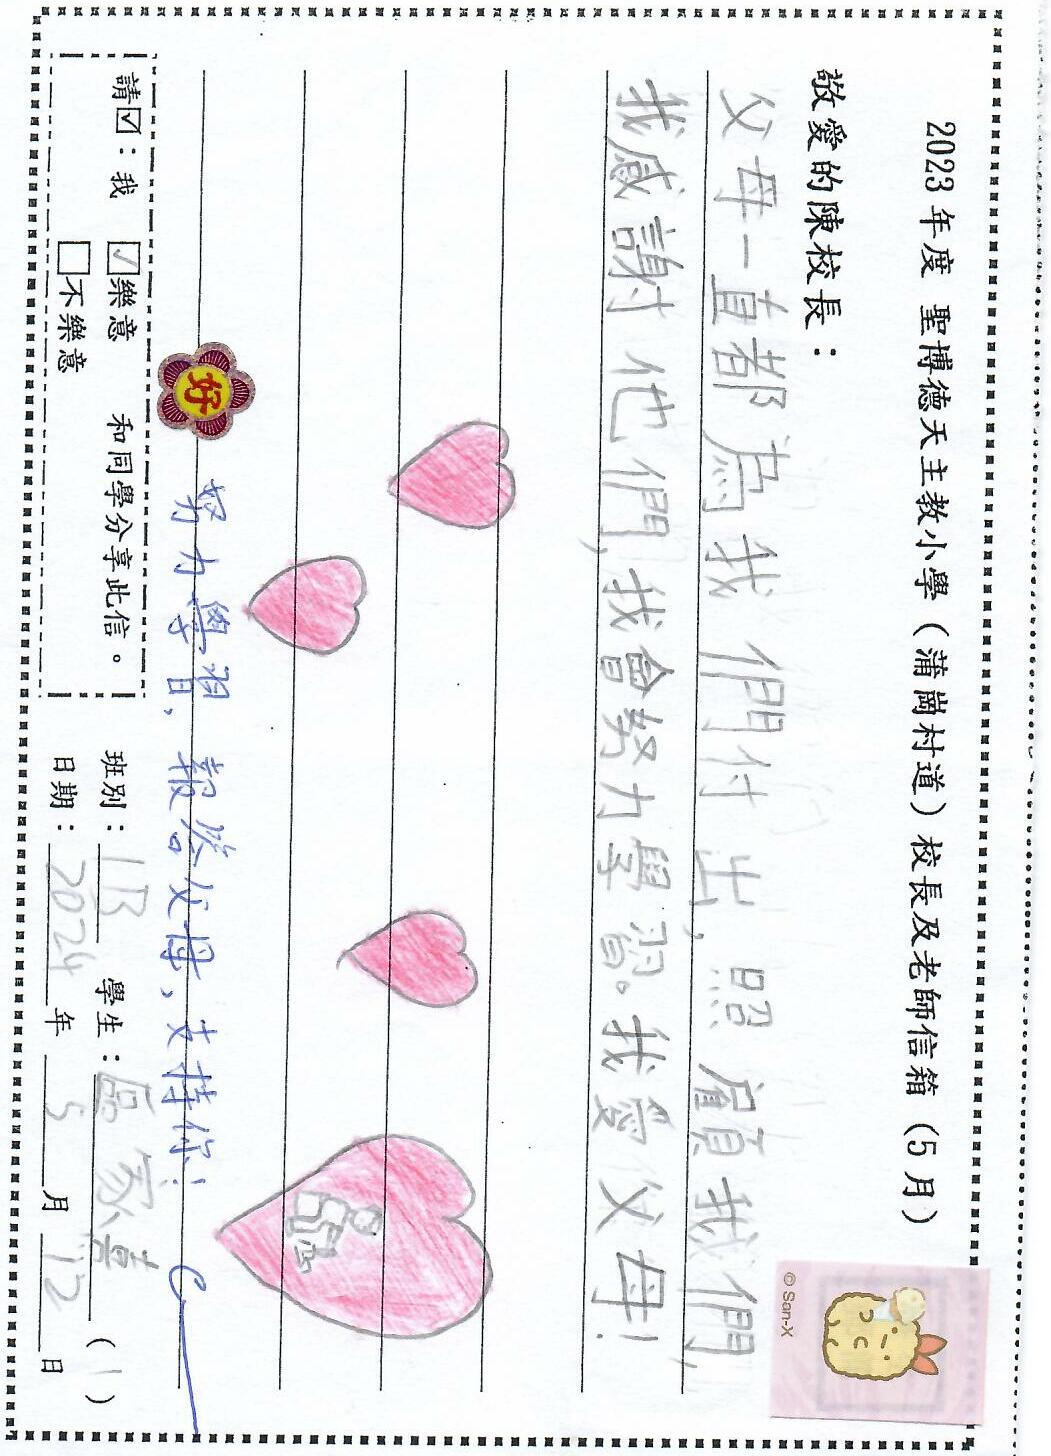 2023 年度 聖博德天主教小學（蒲崗村道）校長及老師信箱（5 月）
敬愛的陳校長：
父母一直都為我們付出，照顧我們，
我感謝他們，我會努力學習。我愛父母！
© San-X
好
努力學習，報答父母，支持你！
請☑：我 ☑樂意 和同學分享此信。
□不樂意
班別：1B 學生：區家熹（1）
日期：2024 年 5 月 12 日